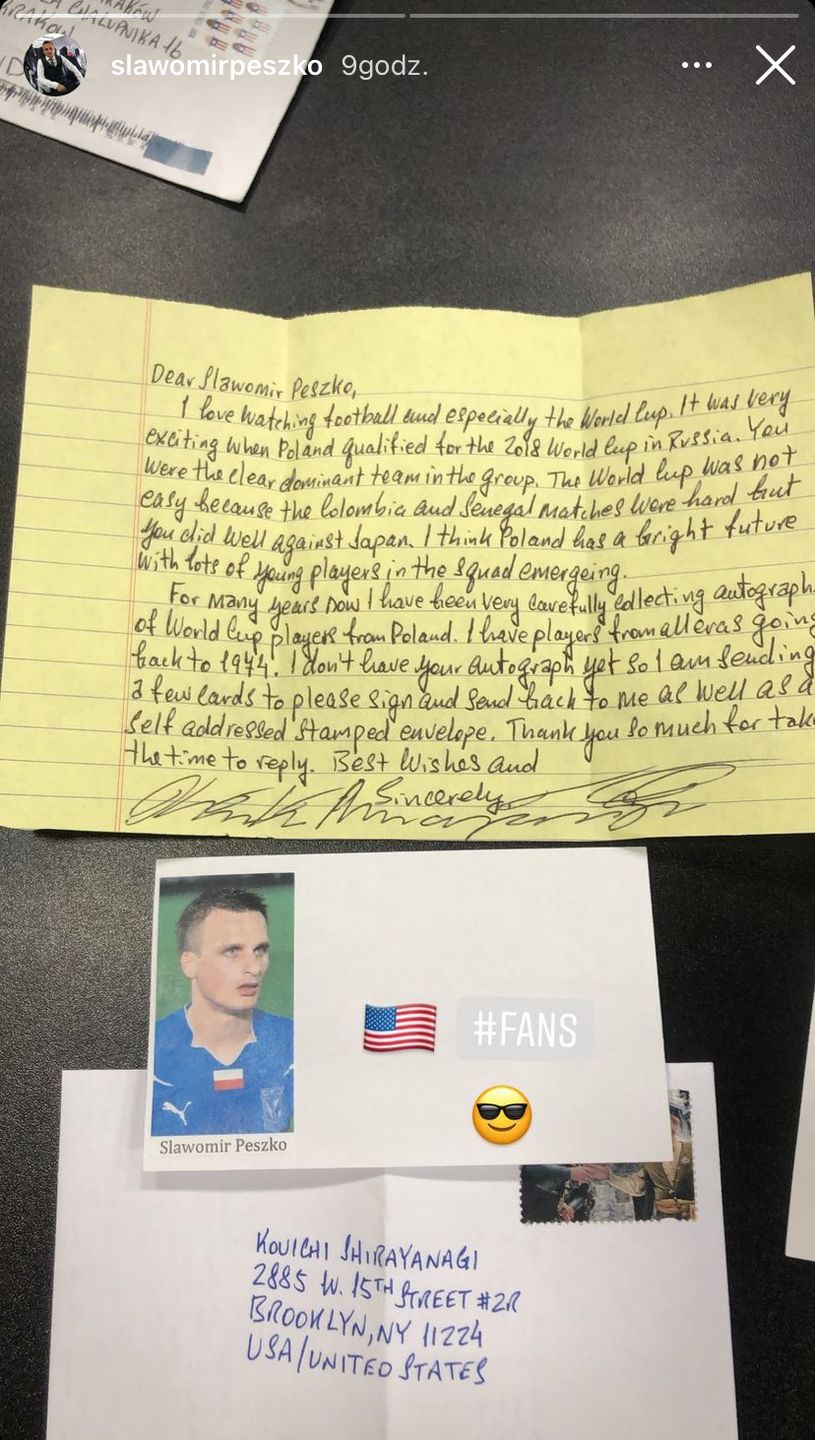 CHAŁUPNIKA 16
slawomirpeszko 9godz.
Dear Slawomir Peszko,
I love watching football and especially the World Cup. It was very
exciting when Poland qualified for the 2018 World Cup in Russia. You
were the clear dominant team in the group. The World Cup was not
easy because the Colombia and Senegal matches were hard but
you did well against Japan. I think Poland has a bright future
with lots of young players in the squad emergeing.
For many years now I have been very carefully collecting autograph
of World Cup players from Poland. I have players from all eras going
back to 1974. I don't have your autograph yet so I am sending
a few cards to please sign and send back to me as well as a
self addressed stamped envelope. Thank you so much for tak
the time to reply. Best Wishes and
Sincerely,
#FANS
Slawomir Peszko
KOUICHI SHIRAYANAGI
2885 W. 15TH STREET #2R
BROOKLYN, NY 11224
USA/UNITED STATES